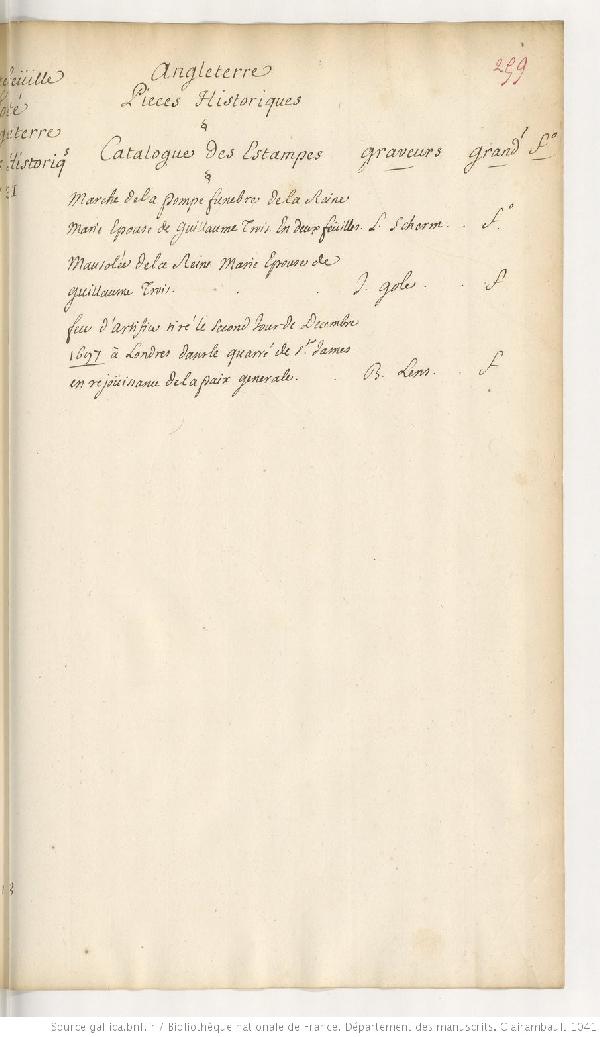 259
Angleterre
Pieces Historiques
Catalogue des Estampes graveurs grand' f.º
Marche de la pompe funebre de la Reine
Marie Epouse de Guillaume Trois En deux feuilles. L. Scherm. . fº.
Mausolée de la Reine Marie Epouse de
Guillaume Trois. . . J. gole. . f
feu d'artifice tiré le second Jour de Decembre
1697 à Londres dans le quarré de St. James
en rejouissance de la paix generale. . B. Lens. . f
euille
oté
gleterre
Historiqs
Source gallica.bnf.fr / Bibliothèque nationale de France. Département des manuscrits. Clairambault 1041